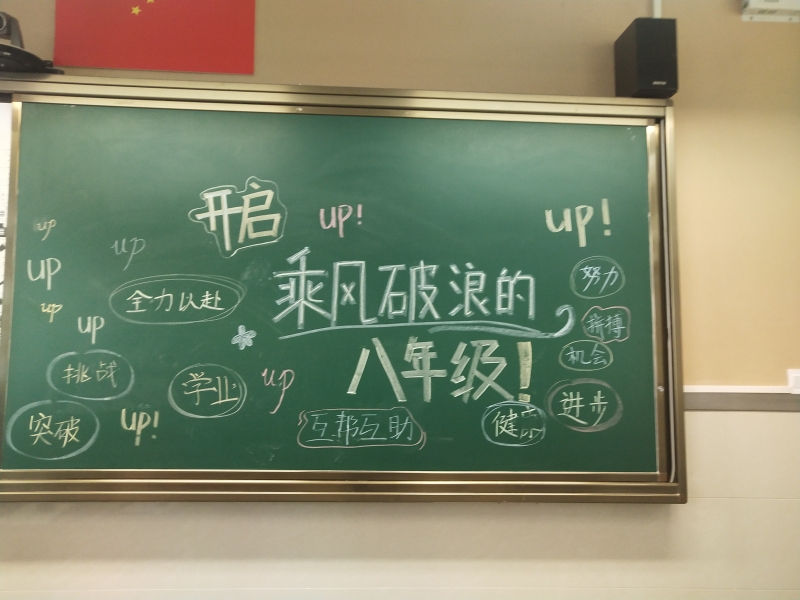 开启
up!
up!
up
up
up
up
up
全力以赴
乘风破浪的
八年级!
努力
拼搏
机会
挑战
学业
up
进步
突破
up!
互帮互助